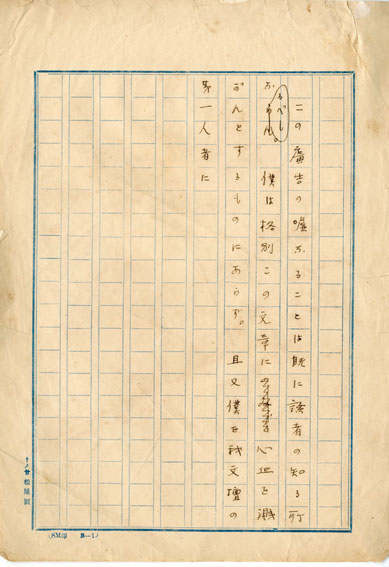 この廣告の嘘なることは既に讀者の知る所
なるべし。僕は格別この文章に心血を濺
がんとするものにあらず。且又僕を我文壇の
第一人者に
十ノ廿 松屋製
(SM印 B—1)